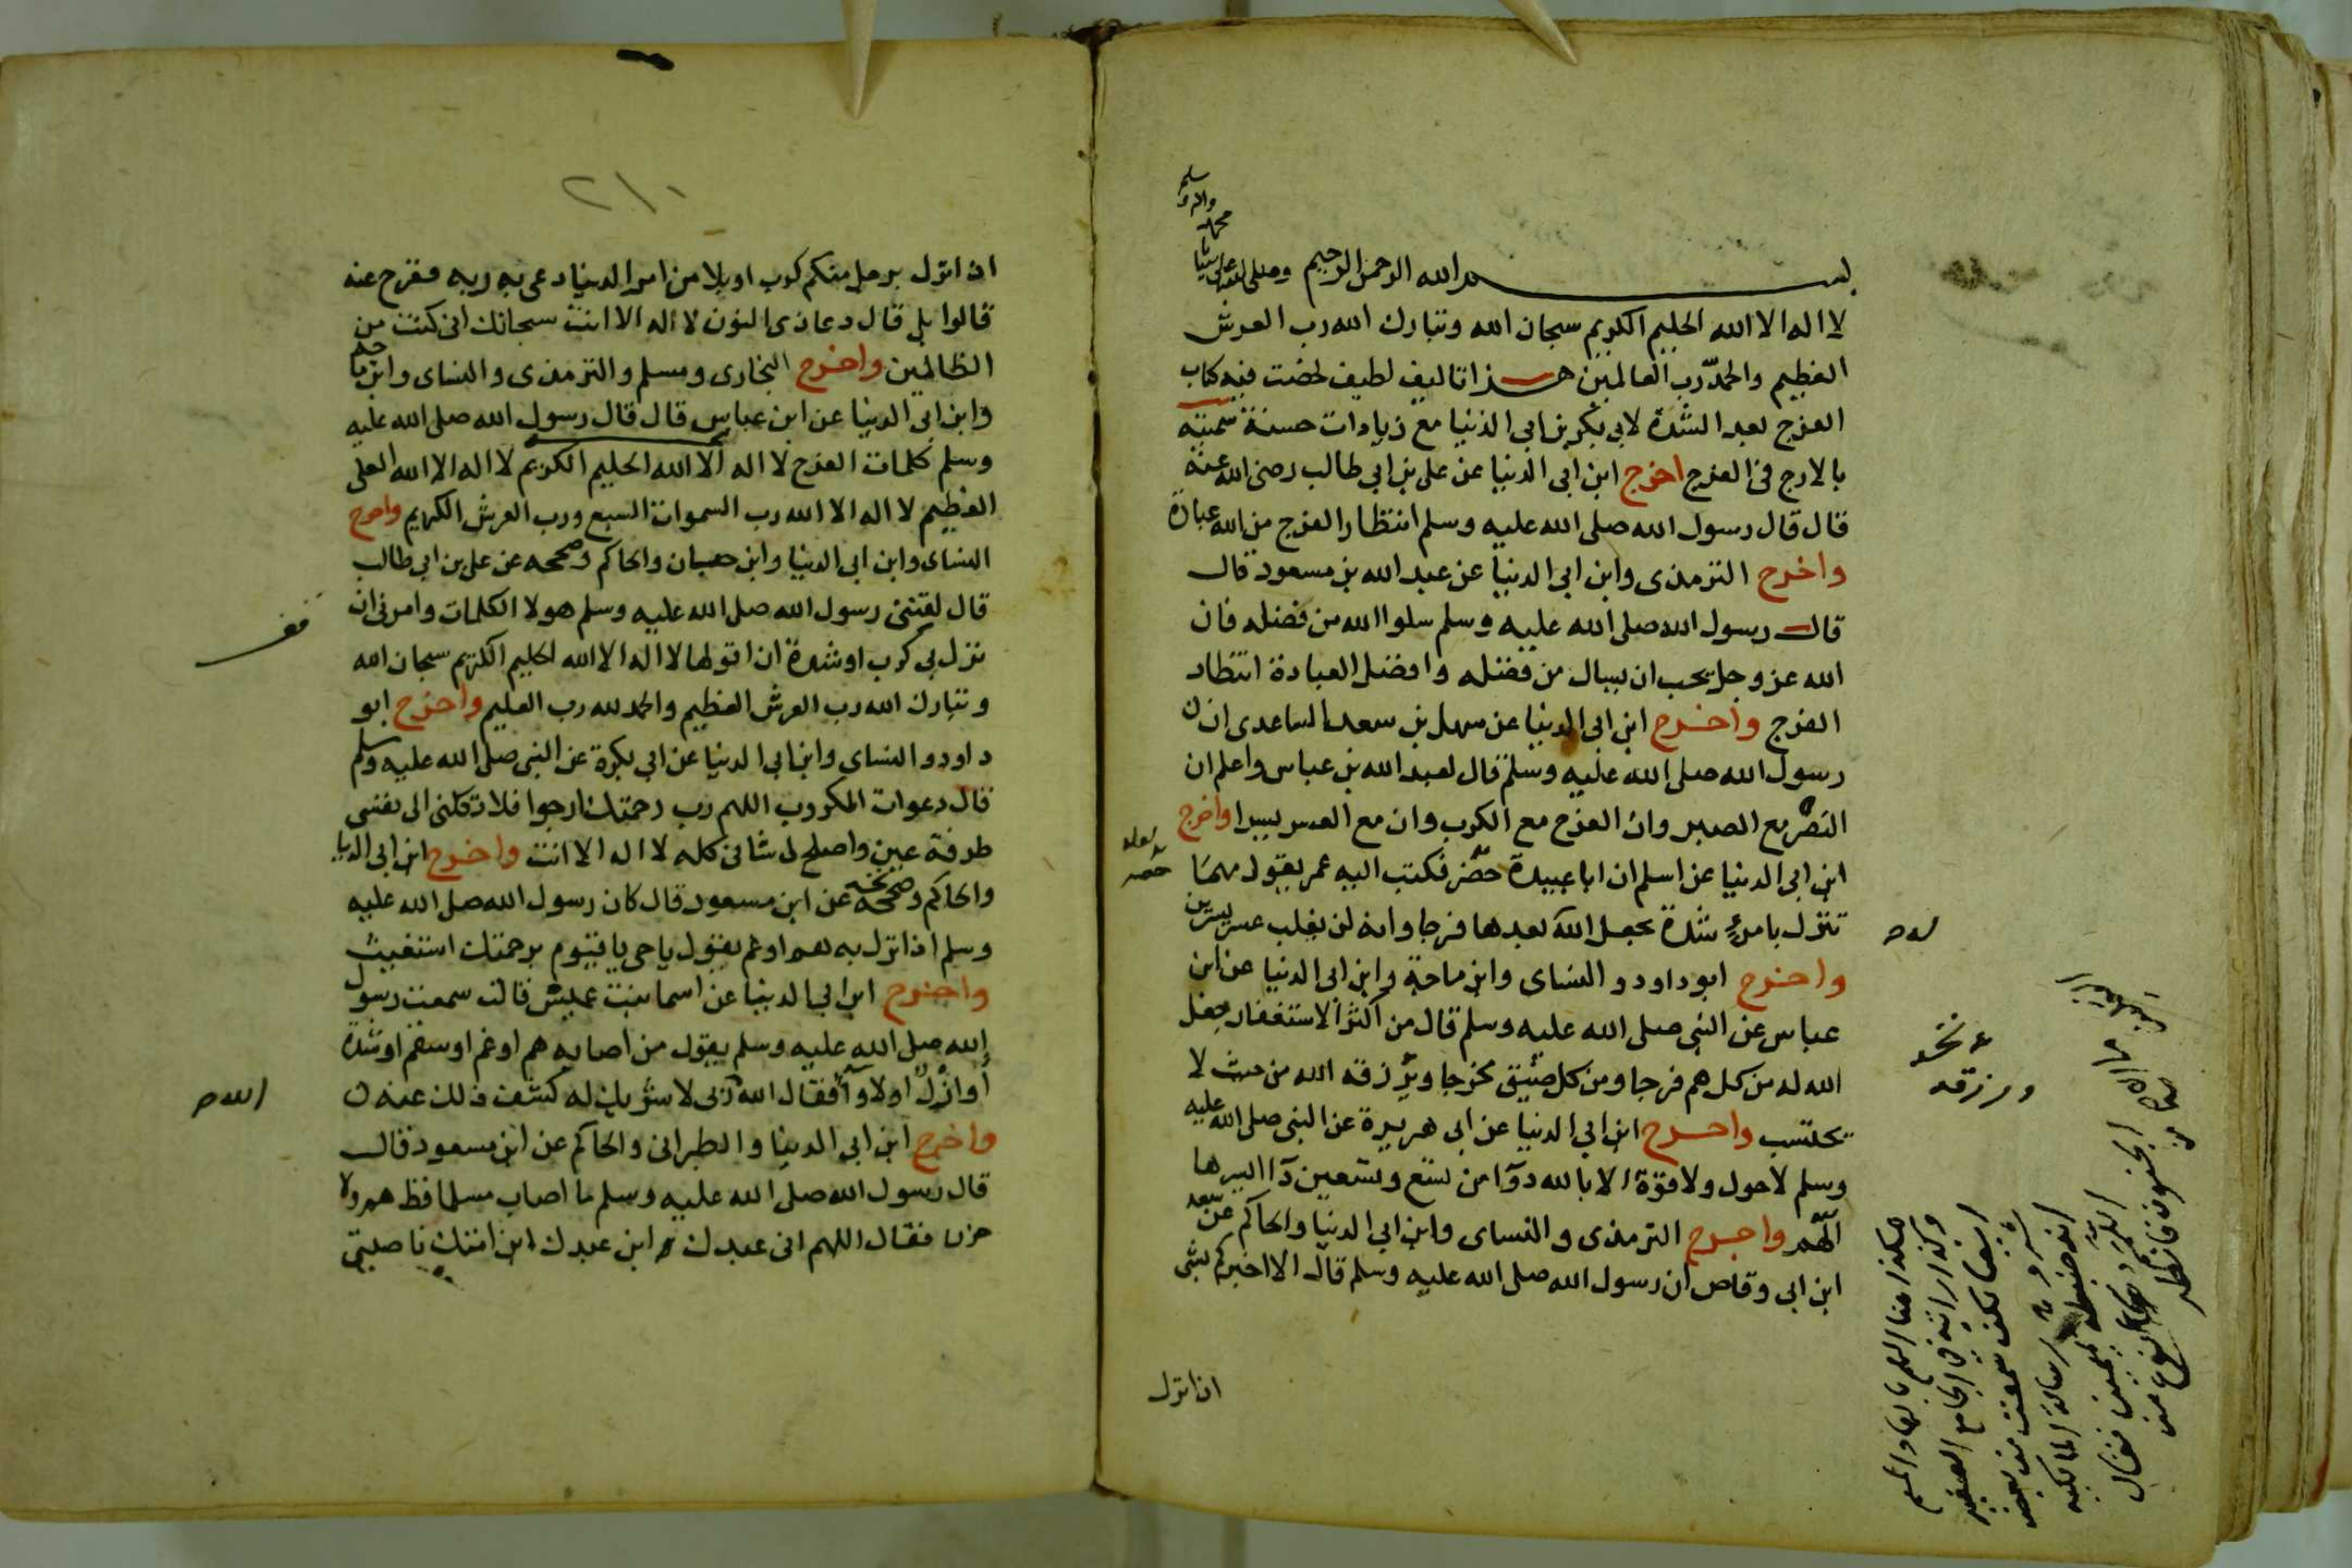 بسم الله الرحمن الرحيم وصلى الله على سيدنا محمد واله وسلم
لا اله الا الله الحليم الكريم سبحان الله وتبارك الله رب العرش
العظيم والحمد لله رب العالمين هذا تاليف لطيف لخصت فيه كتاب
الفرج بعد الشدة لابي بكر بن ابي الدنيا مع زيادات حسنة سميته
بالارج في الفرج اخرج ابن ابى الدنيا عن على بن ابي طالب رضى الله عنه
قال قال رسول الله صلى الله عليه وسلم انتظار الفرج من الله عبادة
واخرج الترمذى وابن ابى الدنيا عن عبد الله بن مسعود قال
قال رسول الله صلى الله عليه وسلم سلوا الله من فضله فان
الله عز وجل يحب ان يسال من فضله وافضل العبادة انتظار
الفرج واخرج ابن ابى الدنيا عن سهل بن سعد الساعدى ان
رسول الله صلى الله عليه وسلم قال لعبد الله بن عباس واعلم ان
النصر مع الصبر وان الفرج مع الكرب وان مع العسر يسرا واخرج
ابن ابى الدنيا عن اسلم ان ابا عبيدة حصر فكتب اليه عمر يقول مهما
تنزل بامرئ شدة يجعل الله بعدها فرجا وانه لن يغلب عسر يسرين
واخرج ابو داود والنساى وابن ماجة وابن ابى الدنيا عن ابن
عباس عن النبى صلى الله عليه وسلم قال من اكثر الاستغفار جعل
الله له من كل هم فرجا ومن كل ضيق مخرجا ويرزقه الله من حيث لا
يحتسب واخرج ابن ابي الدنيا عن ابى هريرة عن النبى صلى الله عليه
وسلم لا حول ولا قوة الا بالله دوآ من تسع وتسعين دآ ايسرها
الهم واخرج الترمذى والنساى وابن ابى الدنيا والحاكم عن سعد
ابن ابى وقاص ان رسول الله صلى الله عليه وسلم قال الا اخبركم بشى
اذا نزل
ورزقه
٢١٠
اذا نزل برجل منكم كرب او بلا من امر الدنيا دعى به ربه ففرج عنه
قالوا بلى قال دعا ذى النون لا اله الا انت سبحانك انى كنت من
الظالمين واخرج البخارى ومسلم والترمذى والنساى وابن ماجه
وابن ابى الدنيا عن ابن عباس قال قال رسول الله صلى الله عليه
وسلم كلمات الفرج لا اله الا الله الحليم الكريم لا اله الا الله العلى
العظيم لا اله الا الله رب السموات السبع ورب العرش الكريم واخرج
النساى وابن ابى الدنيا وابن حبان والحاكم وصححه عن على بن ابى طالب
قال لقننى رسول الله صلى الله عليه وسلم هولا الكلمات وامرنى ان
نزل بى كرب او شدة ان اقولها لا اله الا الله الحليم الكريم سبحان الله
وتبارك الله رب العرش العظيم والحمد لله رب العلمين واخرج ابو
داود والنساى وابن ابى الدنيا عن ابى بكرة عن النبى صلى الله عليه وسلم
قال دعوات المكروب اللهم رب رحمتك ارجوا فلا تكلنى الى نفسى
طرفة عين واصلح لى شانى كله لا اله الا انت واخرج ابن ابى الدنيا
والحاكم وصححه عن ابن مسعود قال كان رسول الله صلى الله عليه
وسلم اذا نزل به هم او غم يقول يا حى يا قيوم برحمتك استغيث
واخرج ابن ابى الدنيا عن اسما بنت عميس قالت سمعت رسول
الله صلى الله عليه وسلم يقول من اصابه هم او غم او سقم او شدة
او ازل او لاوآ فقال الله ربى لا شريك له كشف ذلك عنه
واخرج ابن ابى الدنيا والطبرانى والحاكم عن ابن مسعود قال
قال رسول الله صلى الله عليه وسلم ما اصاب مسلما قط هم ولا
حزن فقال اللهم انى عبدك ابن عبدك ابن امتك ناصيتى